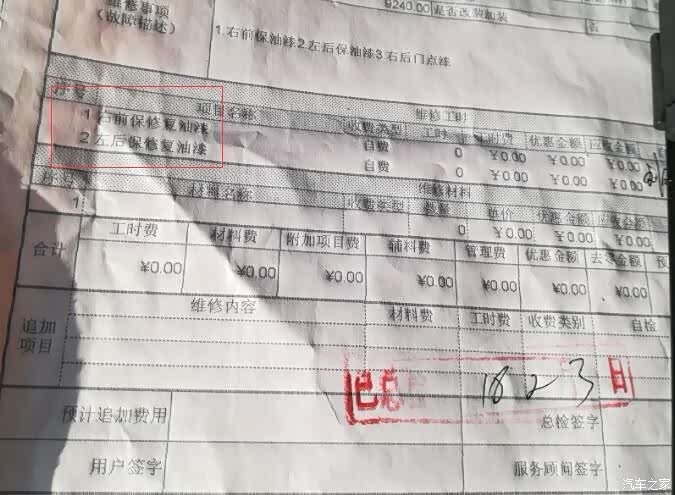 维修事项 9240.00 是否改装加装 否
(故障描述) 1.右前保油漆2.左后保油漆3.右后门点漆
序号 项目名称 维修工时
收费类型 工时 工时费 优惠金额 应收金额
1 右前保修复油漆 自费 0 ¥0.00 ¥0.00 ¥0.00
2 左后保修复油漆 自费 0 ¥0.00 ¥0.00 ¥0.00
序号 材料名称 维修材料
收费类型 数量 单价 优惠金额 应收金额
1 0 ¥0.00 ¥0.00 ¥0.00
合计 工时费 材料费 附加项目费 辅料费 管理费 优惠金额 去零金额 预
¥0.00 ¥0.00 ¥0.00 ¥0.00 ¥0.00 ¥0.00 ¥0.00
追加项目 维修内容 材料费 工时费 收费类别 自检
已总 18 2 3 日
预计追加费用 总检签字
用户签字 服务顾问签字
汽车之家